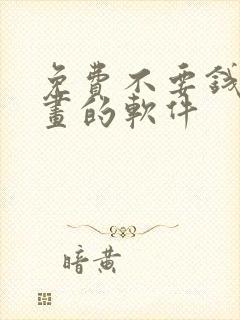 免費不要錢
畫的軟件
暗黃